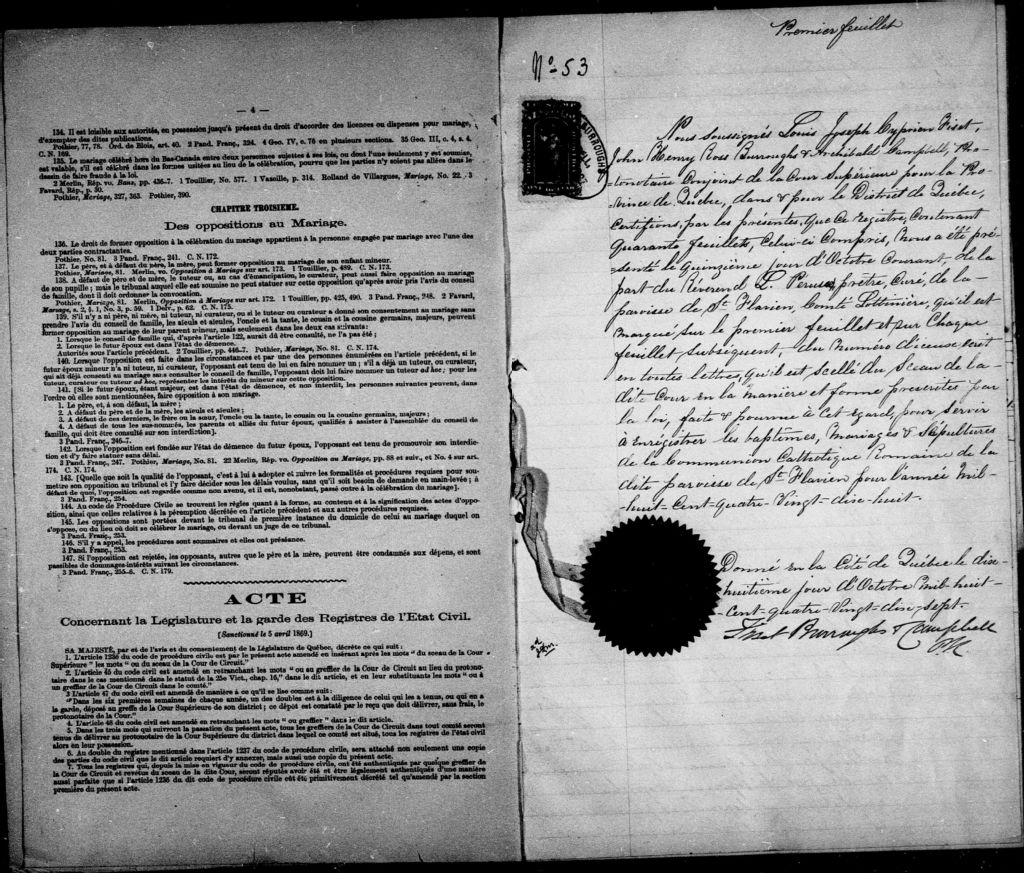 — 4 —
134. Il est loisible aux autorités, en possession jusqu'à présent du droit d'accorder des licences ou dispenses pour mariage,
d'exempter des dites publications.
Pothier, 77, 78. Ord. de Blois, art. 40. 2 Pand. Franç., 324. 4 Geo. IV, c. 76 en plusieurs sections. 35 Geo. III, c. 4, s. 4.
C. N. 169.
135. Le mariage célébré hors du Bas-Canada entre deux personnes sujettes à ses lois, ou dont l'une seulement y est soumise,
est valable, s'il est célébré dans les formes usitées au lieu de la célébration, pourvu que les parties n'y soient pas allées dans le
dessin de faire fraude à la loi.
2 Merlin, Rép. vo. Bans, pp. 436-7. 1 Touillier, No. 577. 1 Vazeille, p. 314. Rolland de Villargues, Mariage, No. 22. 3
Favard, Rép., p. 30.
Pothier, Mariage, 327, 363. Pothier, 390.
CHAPITRE TROISIEME.
Des oppositions au Mariage.
136. Le droit de former opposition à la célébration du mariage appartient à la personne engagée par mariage avec l'une des
deux parties contractantes.
Pothier, No. 81. 3 Pand. Franç., 241. C. N. 172.
137. Le père, et à défaut du père, la mère, peut former opposition au mariage de son enfant mineur.
Pothier, Mariage, 81. Merlin, vo. Opposition à Mariage sur art. 173. 1 Touillier, p. 489. C. N. 173.
138. A défaut de père et de mère, le tuteur ou, au cas d'émancipation, le curateur, peut aussi faire opposition au mariage
de son pupille; mais le tribunal auquel elle est soumise ne peut statuer sur cette opposition qu'après avoir pris l'avis du conseil
de famille, dont il doit ordonner la convocation.
Pothier, Mariage, 81. Merlin, Opposition à Mariage sur art. 172. 1 Touillier, pp. 425, 490. 3 Pand. Franç., 248. 2 Favard,
Mariage, s. 2, § 1, No. 3, p. 59. 1 Delv., p. 62. C. N. 175.
139. S'il n'y a ni père, ni mère, ni tuteur, ni curateur, ou si le tuteur ou curateur a donné son consentement au mariage sans
prendre l'avis du conseil de famille, les aïeuls et aïeules, l'oncle et la tante, le cousin et la cousine germains, majeurs, peuvent
former opposition au mariage de leur parent mineur, mais seulement dans les deux cas suivants:
1. Lorsque le conseil de famille qui, d'après l'article 122, aurait dû être consulté, ne l'a pas été;
2. Lorsque le futur époux est dans l'état de démence.
Autorités sous l'article précédent. 2 Touillier, pp. 446-7. Pothier, Mariage, No. 81. C. N. 174.
140. Lorsque l'opposition est faite dans les circonstances et par une des personnes énumérées en l'article précédent, si le
futur époux mineur n'a ni tuteur, ni curateur, l'opposant est tenu de lui en faire nommer un; s'il a déjà un tuteur, ou curateur,
qui ait déjà consenti au mariage sans consulter le conseil de famille, l'opposant doit lui faire nommer un tuteur ad hoc; pour les
tuteur, curateur ou tuteur ad hoc, représenter les intérêts du mineur sur cette opposition.
141. [Si le futur époux, étant majeur, est dans l'état de démence, et non interdit, les personnes suivantes peuvent, dans
l'ordre où elles sont mentionnées, faire opposition à son mariage.
1. Le père, et, à son défaut, la mère;
2. A défaut du père et de la mère, les aïeuls et aïeules;
3. A défaut de ces derniers, le frère ou la sœur, l'oncle ou la tante, le cousin ou la cousine germains, majeurs;
4. A défaut de tous les sus-nommés, les parents et alliés du futur époux, qualifiés à assister à l'assemblée du conseil de
famille, qui doit être consulté sur son interdiction].
3 Pand. Franç., 246-7.
142. Lorsque l'opposition est fondée sur l'état de démence du futur époux, l'opposant est tenu de promouvoir son interdic-
tion et d'y faire statuer sans délai.
3 Pand. Franç., 247. Pothier, Mariage, No. 81. 22 Merlin, Rép. vo. Opposition au Mariage, pp. 88 et suiv., et No. 4 sur art.
174. C. N. 174.
143. [Quelque soit la qualité de l'opposant, c'est à lui à adopter et suivre les formalités et procédures requises pour sou-
mettre son opposition au tribunal et l'y faire décider sous les délais voulus, sans qu'il soit besoin de demande en main-levée; à
défaut de quoi, l'opposition est regardée comme non avenue, et il est, nonobstant, passé outre à la célébration du mariage].
3 Pand. Franç., 254.
144. Au code de Procédure Civile se trouvent les règles quant à la forme, au contenu et à la signification des actes d'oppo-
sition, ainsi que celles relatives à la péremption décrétée en l'article précédent et aux autres procédures requises.
145. Les oppositions sont portées devant le tribunal de première instance du domicile de celui au mariage duquel on
s'oppose, ou du lieu où doit se célébrer le mariage, ou devant un juge de ce tribunal.
3 Pand. Franç., 253.
146. S'il y a appel, les procédures sont sommaires et elles ont préséance.
3 Pand. Franç., 253.
147. Si l'opposition est rejetée, les opposants, autres que le père et la mère, peuvent être condamnés aux dépens, et sont
passibles de dommages-intérêts suivant les circonstances.
3 Pand. Franç., 255-6. C. N. 179.
ACTE
Concernant la Législature et la garde des Registres de l'Etat Civil.
[Sanctionné le 5 avril 1869.]
SA MAJESTÉ, par et de l'avis et du consentement de la Législature de Québec, décrète ce qui suit:
1. L'article 1236 du code de procédure civile est par le présent acte amendé en insérant après les mots "du sceau de la Cour
Supérieure" les mots "ou du sceau de la Cour de Circuit."
2. L'article 45 du code civil est amendé en retranchant les mots "ou au greffier de la Cour de Circuit au lieu du protono-
taire dans le cas mentionné dans le statut de la 25e Vict., chap. 16," dans le dit article, et en leur substituants les mots "ou à
un greffier de la Cour de Circuit dans le comté."
3 L'article 47 du code civil est amendé de manière à ce qu'il se lise comme suit:
"Dans les six premières semaines de chaque année, un des doubles est à la diligence de celui qui les a tenus, ou qui en a
la garde, déposé au greffe de la Cour Supérieure de son district; ce dépôt est constaté par le reçu que doit délivrer, sans frais, le
protonotaire de la Cour."
4. L'article 48 du code civil est amendé en retranchant les mots "ou greffier" dans le dit article.
5. Dans les trois mois qui suivront la passation du présent acte, tous les greffiers de la Cour de Circuit dans tout comté seront
tenus de délivrer au protonotaire de la Cour Supérieure du district dans lequel ce comté est situé, tous les registres de l'état civil
alors en leur possession.
6. Au double du registre mentionné dans l'article 1237 du code de procédure civile, sera attaché non seulement une copie
des parties du code civil que le dit article requiert d'y annexer, mais aussi une copie du présent acte.
7. Tous les registres qui, depuis la mise en vigueur du code de procédure civile, ont été authentiqués par quelque greffier de
la Cour de Circuit et revêtus du sceau de la dite Cour, seront réputés avoir été et être légalement authentiqués d'une manière
aussi parfaite que si l'article 1236 du dit code de procédure civile eût été primitivement décrété tel qu'amendé par la section
première du présent acte.
Premier feuillet
No. 53
BURROUGHS
Nous soussignés Louis Joseph Cyprien Fiset,
John Henry Ross Burroughs & Archibald Campbell, Pro-
=tonotaire Conjoint de la Cour Supérieure pour la Pro-
vince de Québec, dans & pour le District de Québec,
Certifions, par les présentes, que ce registre, contenant
quarante feuillets, celui-ci compris, Nous a été pré-
senté le quinzième jour d'Octobre Courant, de la
part du Révérend L. Peruse, prêtre, Curé, de la-
paroisse de St Flavien, Comté Lotbinière, qu'il est
marqué sur le premier feuillet et sur chaque
feuillet subséquent, du Numéro d'iceux écrit
en toutes lettres, qu'il est scellé du Sceau de la-
dite Cour en la manière et forme prescrites par
la loi, faite & pourvue à cet égard, pour servir
à enregistrer les baptêmes, Mariages & Sépultures
de la Communion Catholique Romaine de la
dite paroisse de St Flavien pour l'année mil-
-huit-cent-quatre-vingt-dix-huit.
Donné en la Cité de Québec le dix-
huitième jour d'Octobre mil-huit-
-cent-quatre-vingt-dix-sept.
Fiset Burroughs & Campbell